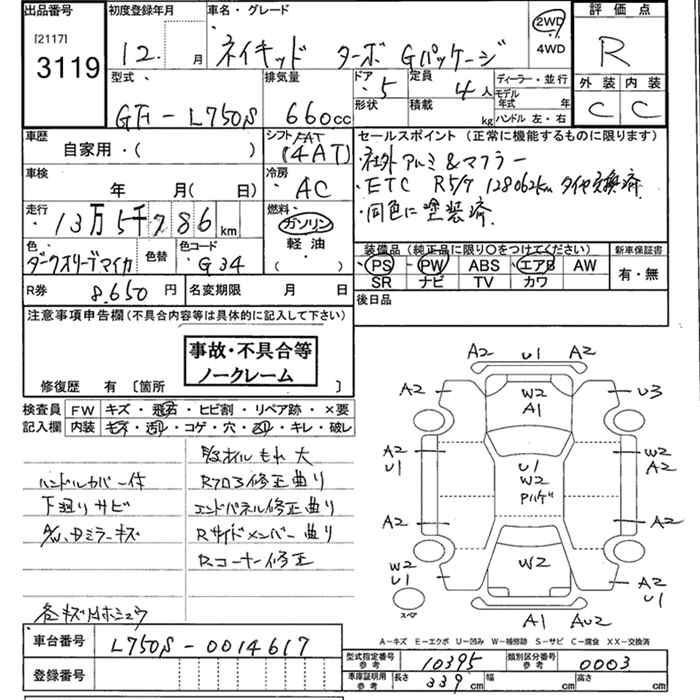 出品番号
[2117]
3119
初度登録年月
12. 月
車名・グレード
ネイキッド ターボ Gパッケージ
2WD
4WD
評価点
R
外装 内装
C C
型式
GF-L750S
排気量
660cc
ドア 5
形状
定員 4人
積載 kg
ディーラー・並行
モデル年式 年
ハンドル 左・右
車歴
自家用・( )
シフト FAT
(4AT)
車検
年 月( 日)
冷房
AC
走行
13万5千786km
燃料
ガソリン
軽油
( )
色
ダークオリーブマイカ
色替
色コード
G34
R券 8.650円
名変期限 月 日
セールスポイント (正常に機能するものに限ります)
・社外アルミ&マフラー
・ETC R5/7 128062km タイヤ交換済
・同色に塗装済
装備品 (純正品に限り○をつけてください)
PS PW ABS エアB AW
SR ナビ TV カワ
新車保証書
有・無
後日品
注意事項申告欄(不具合内容等は具体的に記入して下さい)
事故・不具合等
ノークレーム
修復歴 有 〔箇所
検査員
記入欄
FW キズ・飛石・ヒビ割・リペア跡・×要
内装 キズ・汚れ・コゲ・穴・凹・キレ・破レ
ハンドルカバー一体
下廻りサビ
オイルもれ 大
Rフロア修正曲り
エンドパネル修正曲り
Rサイドメンバー曲り
Rコーナー修正
A2 U1 A2
A2 W2 A1 U3
A2 U1 U1 W2 Pハゲ W2 A2
A2 A2
W2 U1 W2 A2 U1
スペア
A1 AU2
A-キズ E-エクボ U-凹み W-補修跡 S-サビ C-腐食 XX-交換済
車台番号 L750S-0014617
登録番号
型式指定番号 参考 10395
類別区分番号 参考 0003
車庫証明用 参考 長さ 339cm 幅 cm 高さ cm